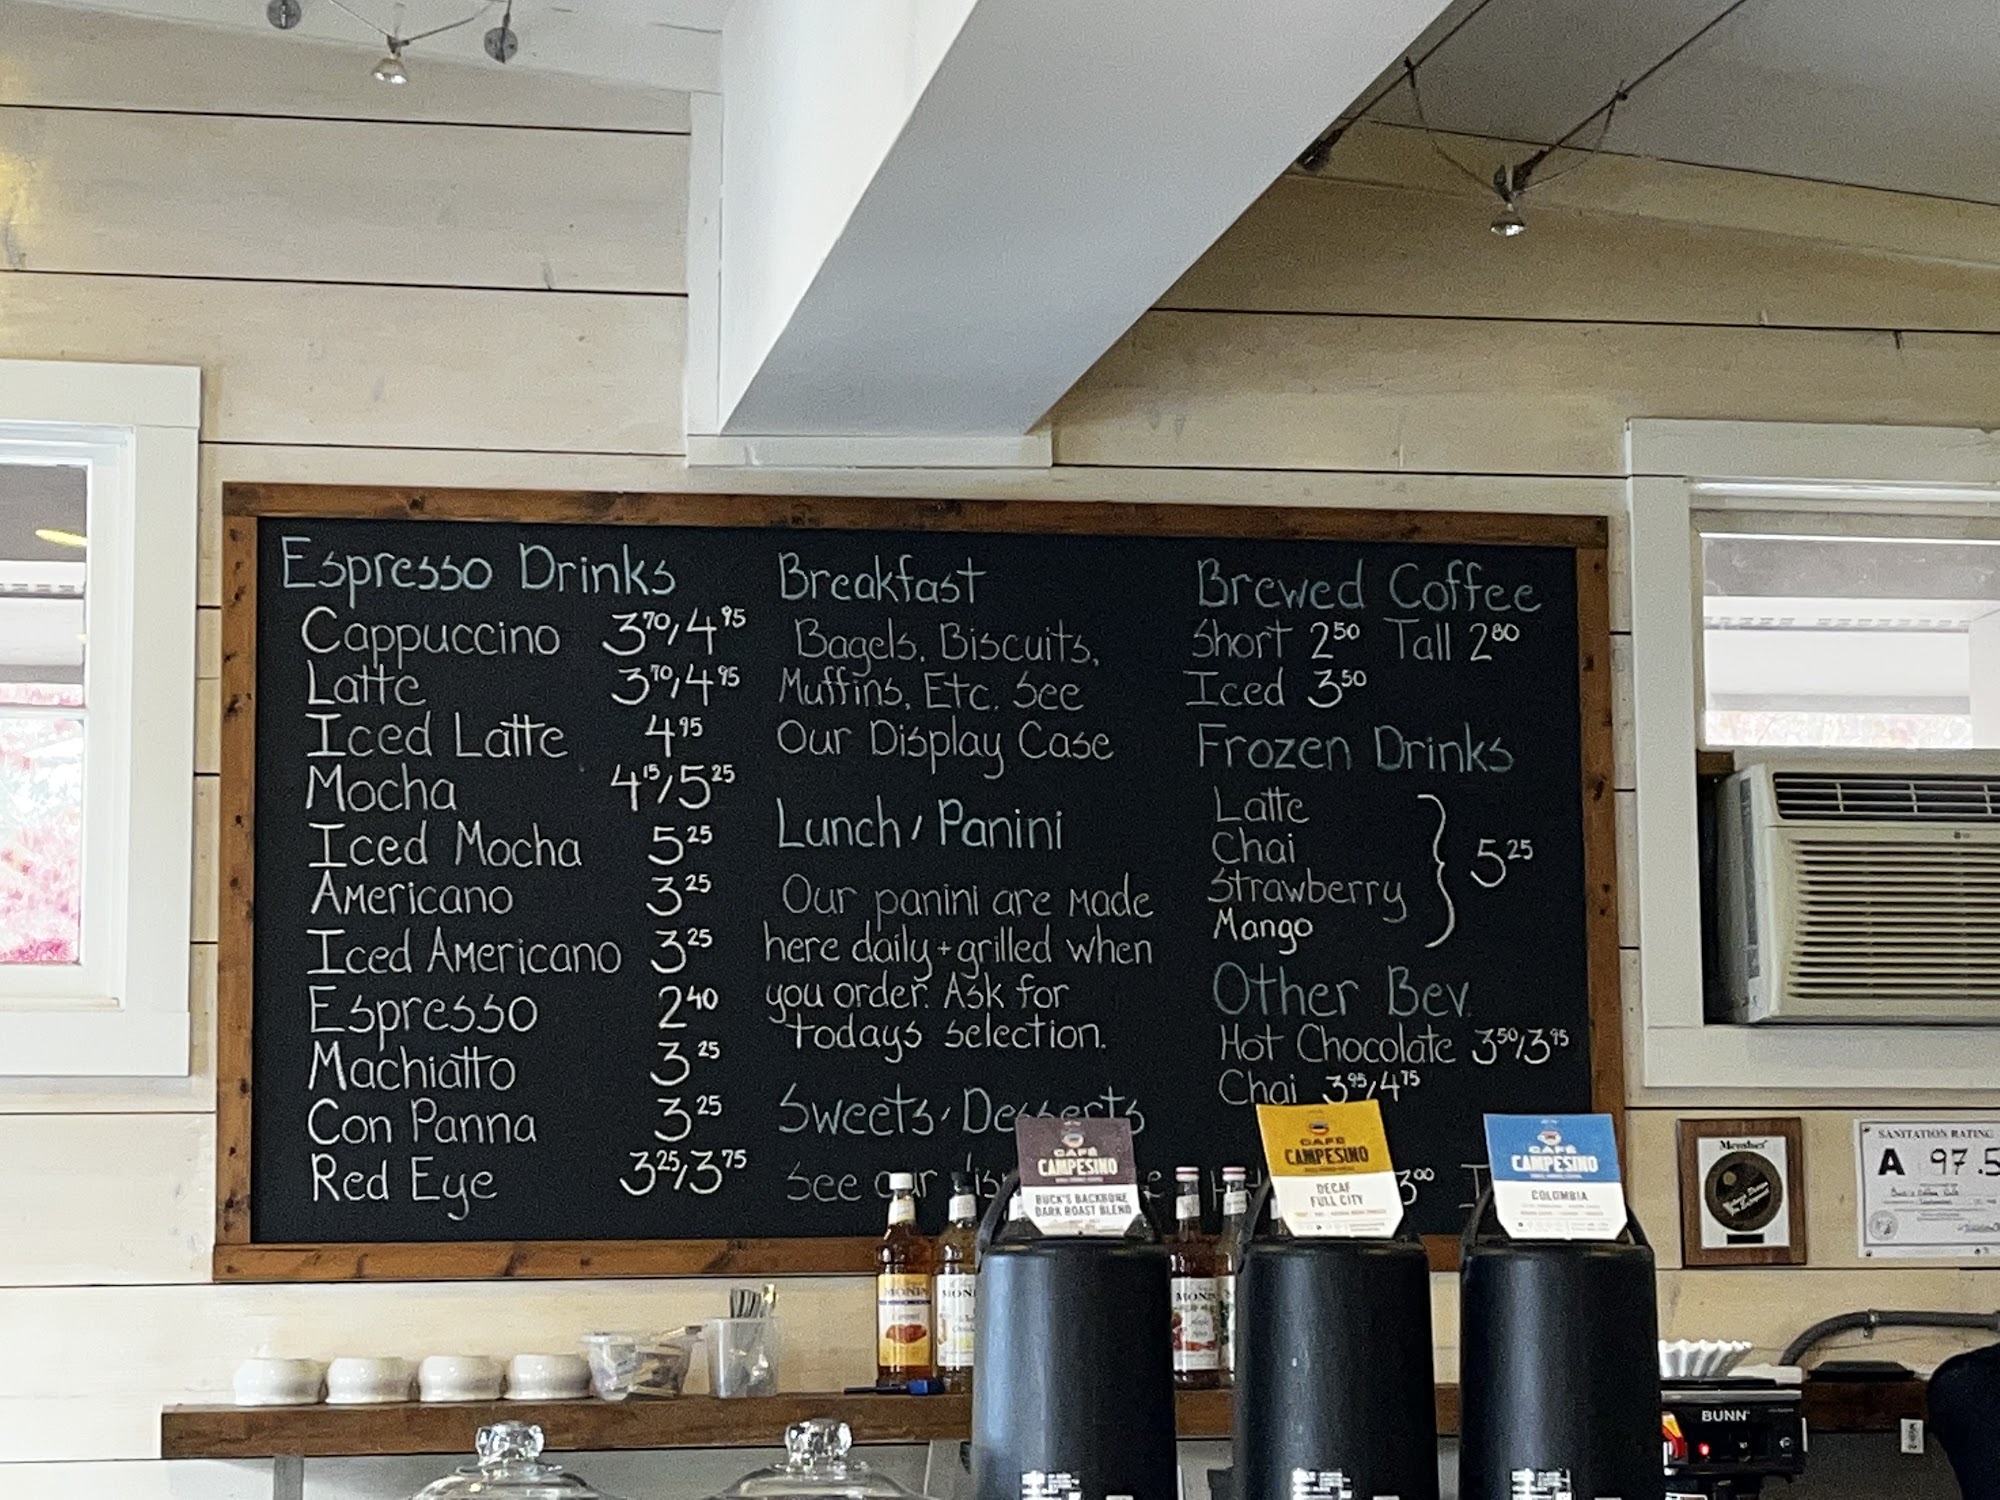 Espresso Drinks
Cappuccino 3.70/4.95
Latte 3.70/4.95
Iced Latte 4.95
Mocha 4.15/5.25
Iced Mocha 5.25
Americano 3.25
Iced Americano 3.25
Espresso 2.40
Machiatto 3.25
Con Panna 3.25
Red Eye 3.25/3.75
Breakfast
Bagels, Biscuits,
Muffins, Etc. See
Our Display Case
Lunch/Panini
Our panini are made
here daily + grilled when
you order. Ask for
todays selection.
Sweets/Desserts
See our
Brewed Coffee
Short 2.50 Tall 2.80
Iced 3.50
Frozen Drinks
Latte
Chai
Strawberry
Mango
5.25
Other Bev.
Hot Chocolate 3.50/3.95
Chai 3.95/4.75
3.00
CAFÉ
CAMPESINO
BUCK'S BACKBONE
DARK ROAST BLEND
CAFÉ
CAMPESINO
DECAF
FULL CITY
CAFÉ
CAMPESINO
COLOMBIA
Member
SANITATION RATING
A 97.5
MONIN
Caramel
MONIN
MONIN
BUNN